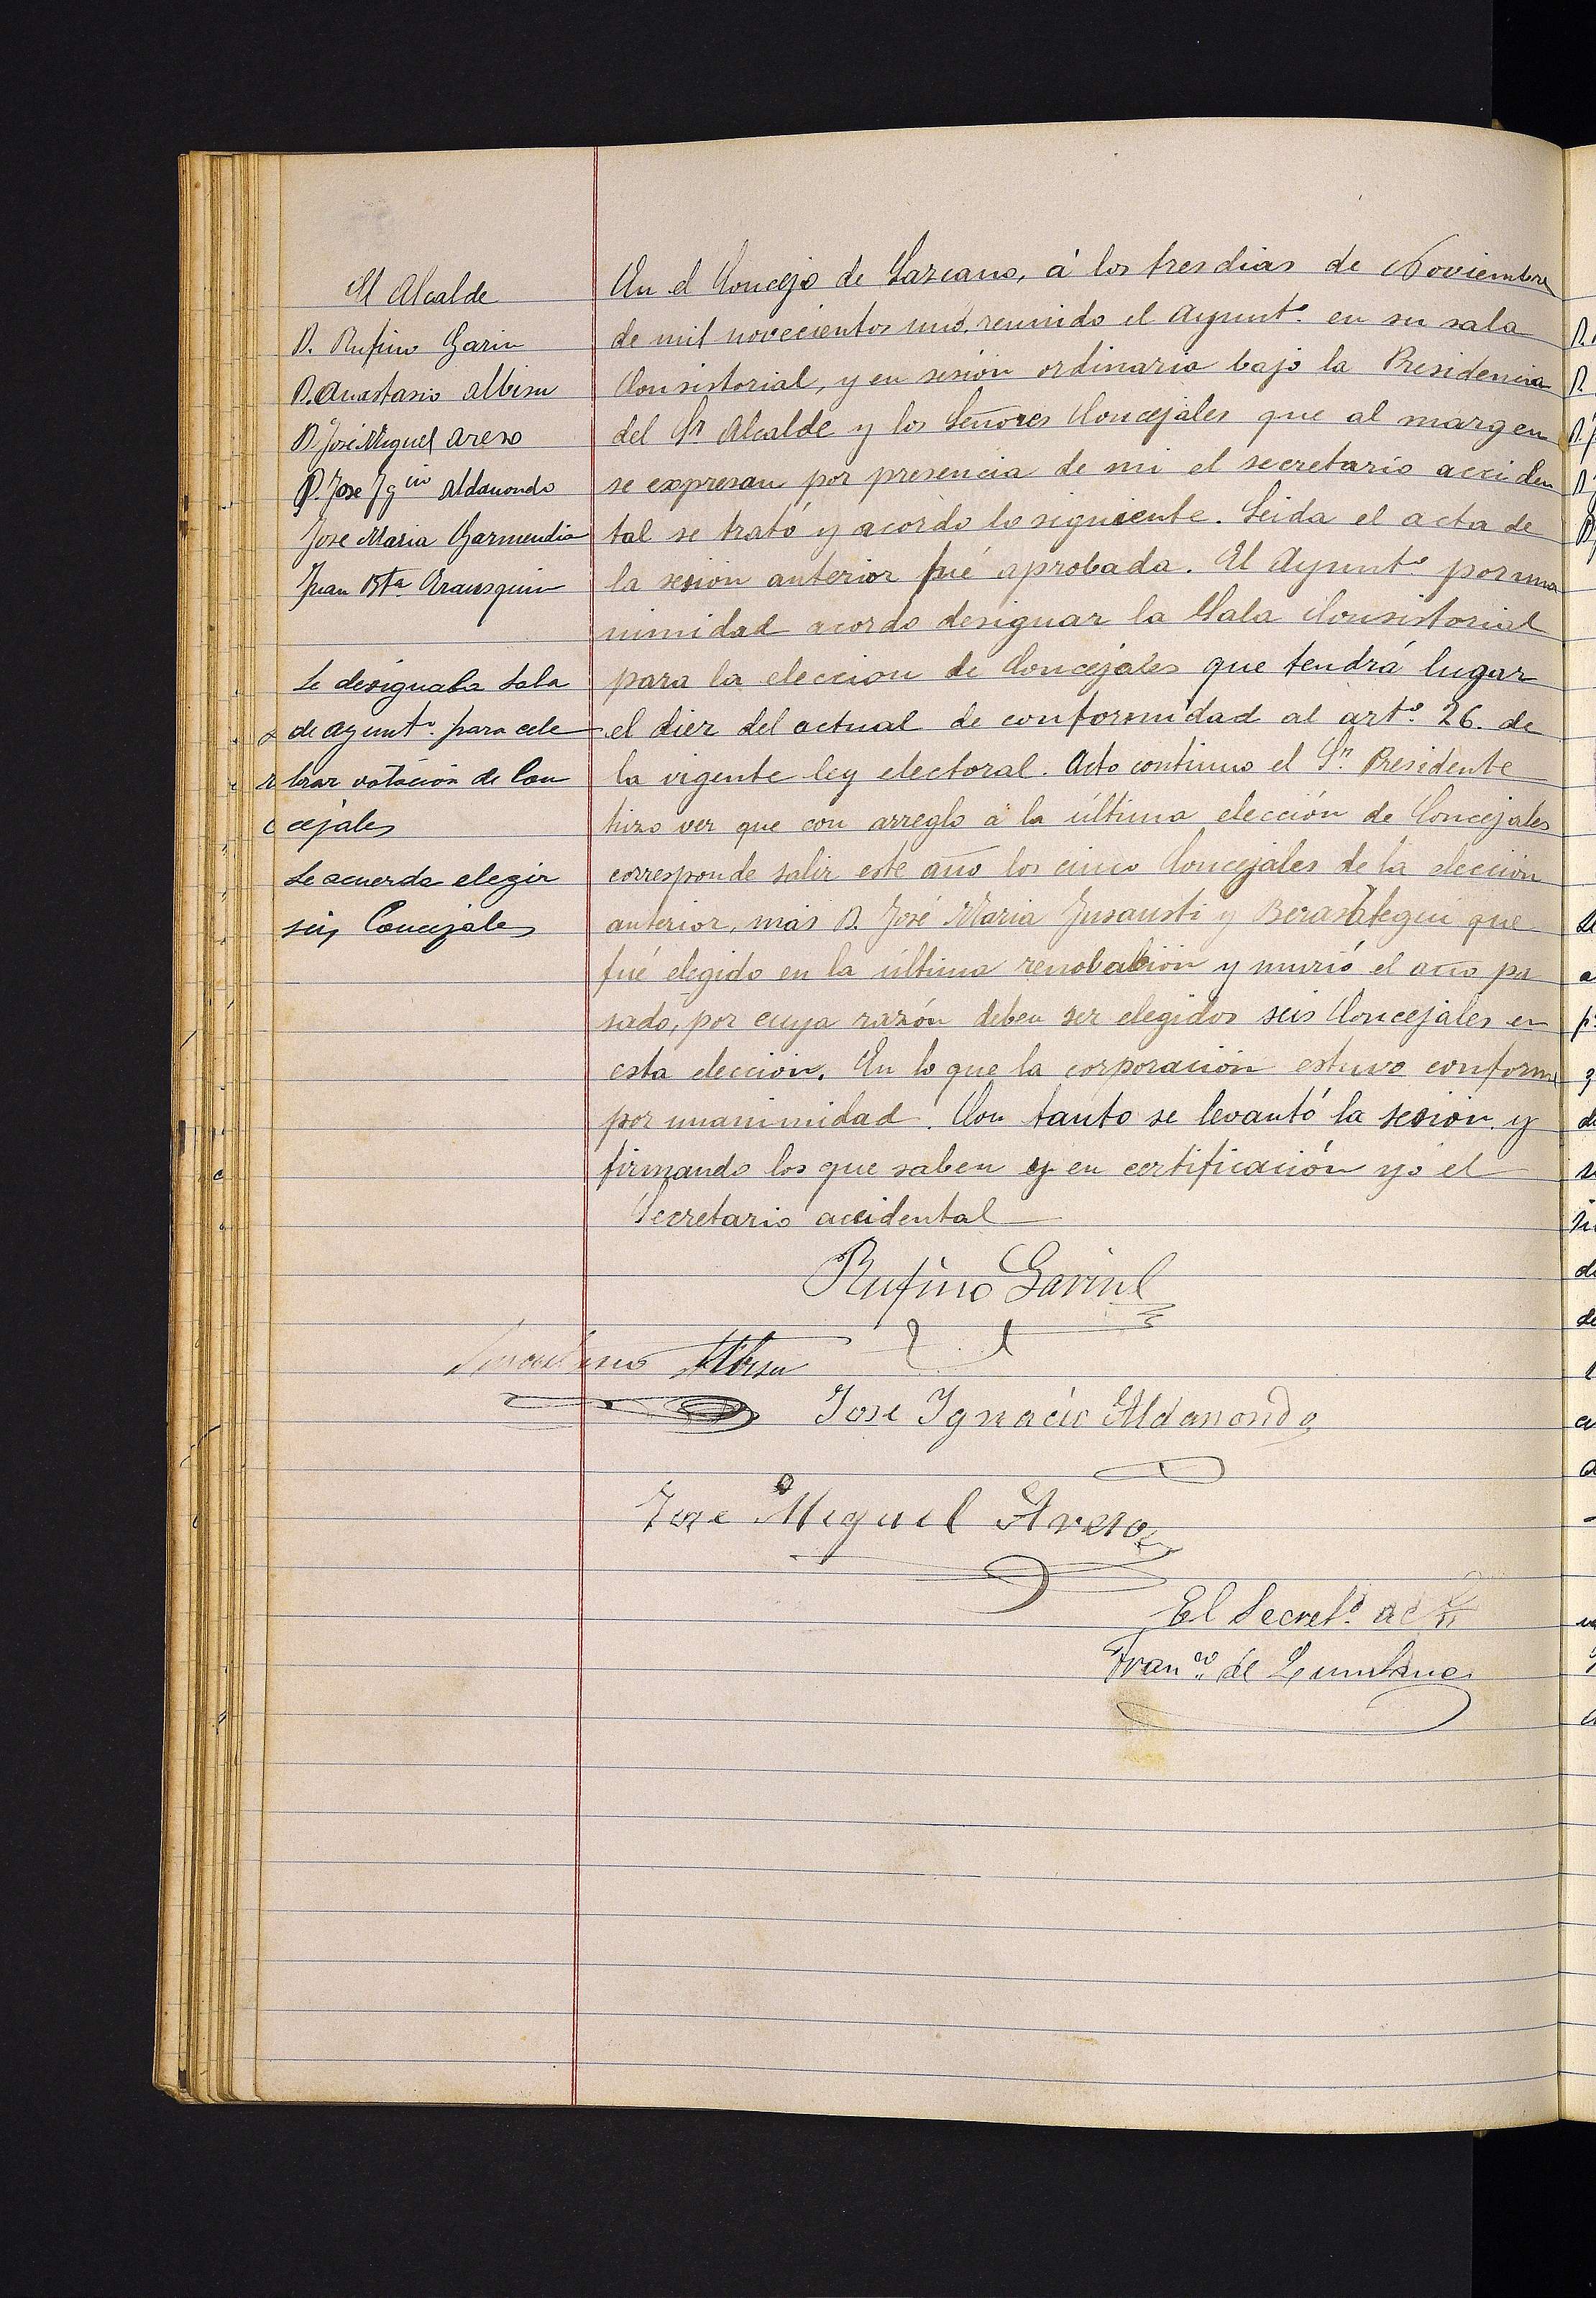 El Alcalde
D. Rufino Garin
D. Anastasio Albisu
D. José Miguel Areso
D. Jose Ygcio Aldanondo
Jose Maria Garmendia
Juan Bta Erausquin
Se designaba Sala
de Ayunto. para cele
brar votación de Con
cejales
Se acuerda elegir
seis Concejales
En el Concejo de Lazcano, á los tres dias de Noviembre
de mil novecientos uno, reunido el Ayunto. en su sala
Consistorial, y en sesión ordinaria bajo la Presidencia
del Sr Alcalde y los Señores Concejales que al margen
se expresan por presencia de mi el secretario acciden
tal se trató y acordo lo siguiente. Leida el acta de
la sesion anterior fué aprobada. El Ayunto por una
nimidad acordo designar la Sala Consistorial
para la eleccion de Concejales que tendrá lugar
el diez del actual de conformidad al arto. 26. de
la vigente ley electoral. Acto continuo el Sr. Presidente
hizo ver que con arreglo á la última elección de Concejales
corresponde salir este año los cinco Concejales de la elección
anterior, más D. José Maria Jusausti y Berasategui que
fué elegido en la última renobabión y murió el año pa
sado, por cuya razón deben ser elegidos seis Concejales en
esta elección. En lo que la corporación estuvo conforme
por unanimidad. Con tanto se levantó la sesion y
firmando los que saben y en certificación yo el
Secretario accidental
Rufino Garin
Albisu
Jose Ygnacio Aldanondo
Jose Miguel Areso
El Secreto. acctl
Franco. de